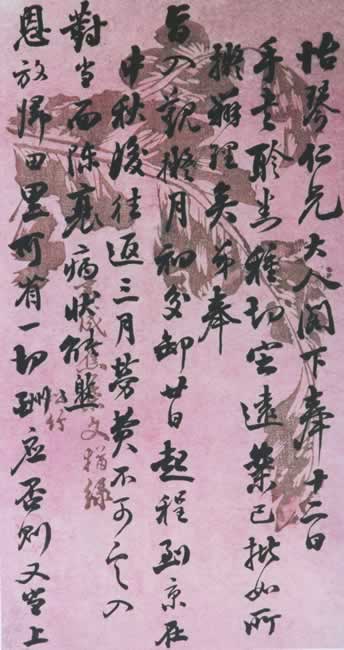 怡琴仁兄大人閣下奉十二日
手書聆悉種切遠築已批如所
擬辦理矣弟奉
旨入覲擬月初交卸廿日起程到京在
中秋後往返三月勞費不可言入
對當面陳衰病狀能
恩放歸田里可有一切酬應否則又當上